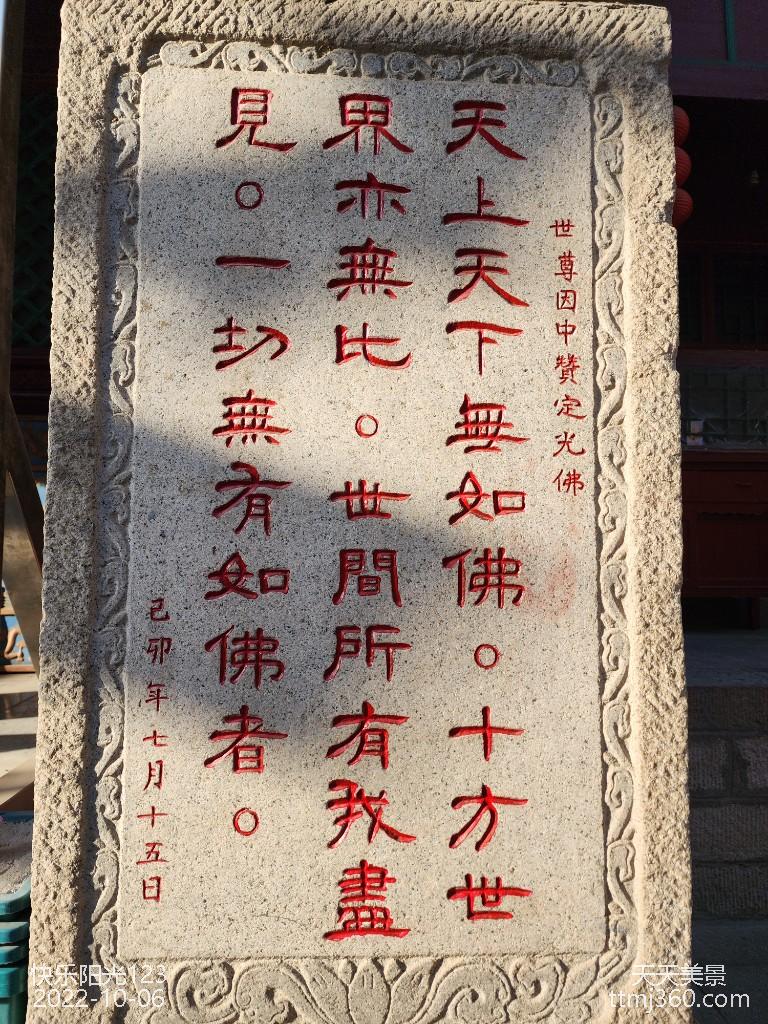 世尊因中贊定光佛
天上天下無如佛。十方世
界亦無比。世間所有我盡
見。一切無有如佛者。
己卯年七月十五日
快乐阳光123
2022-10-06
天天美景
ttmj360.com